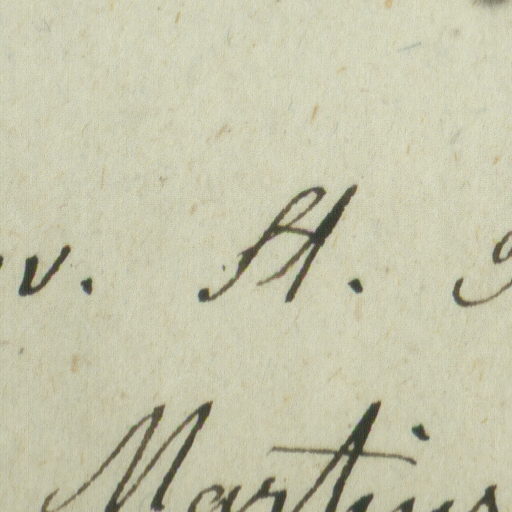 v. H.
Martius